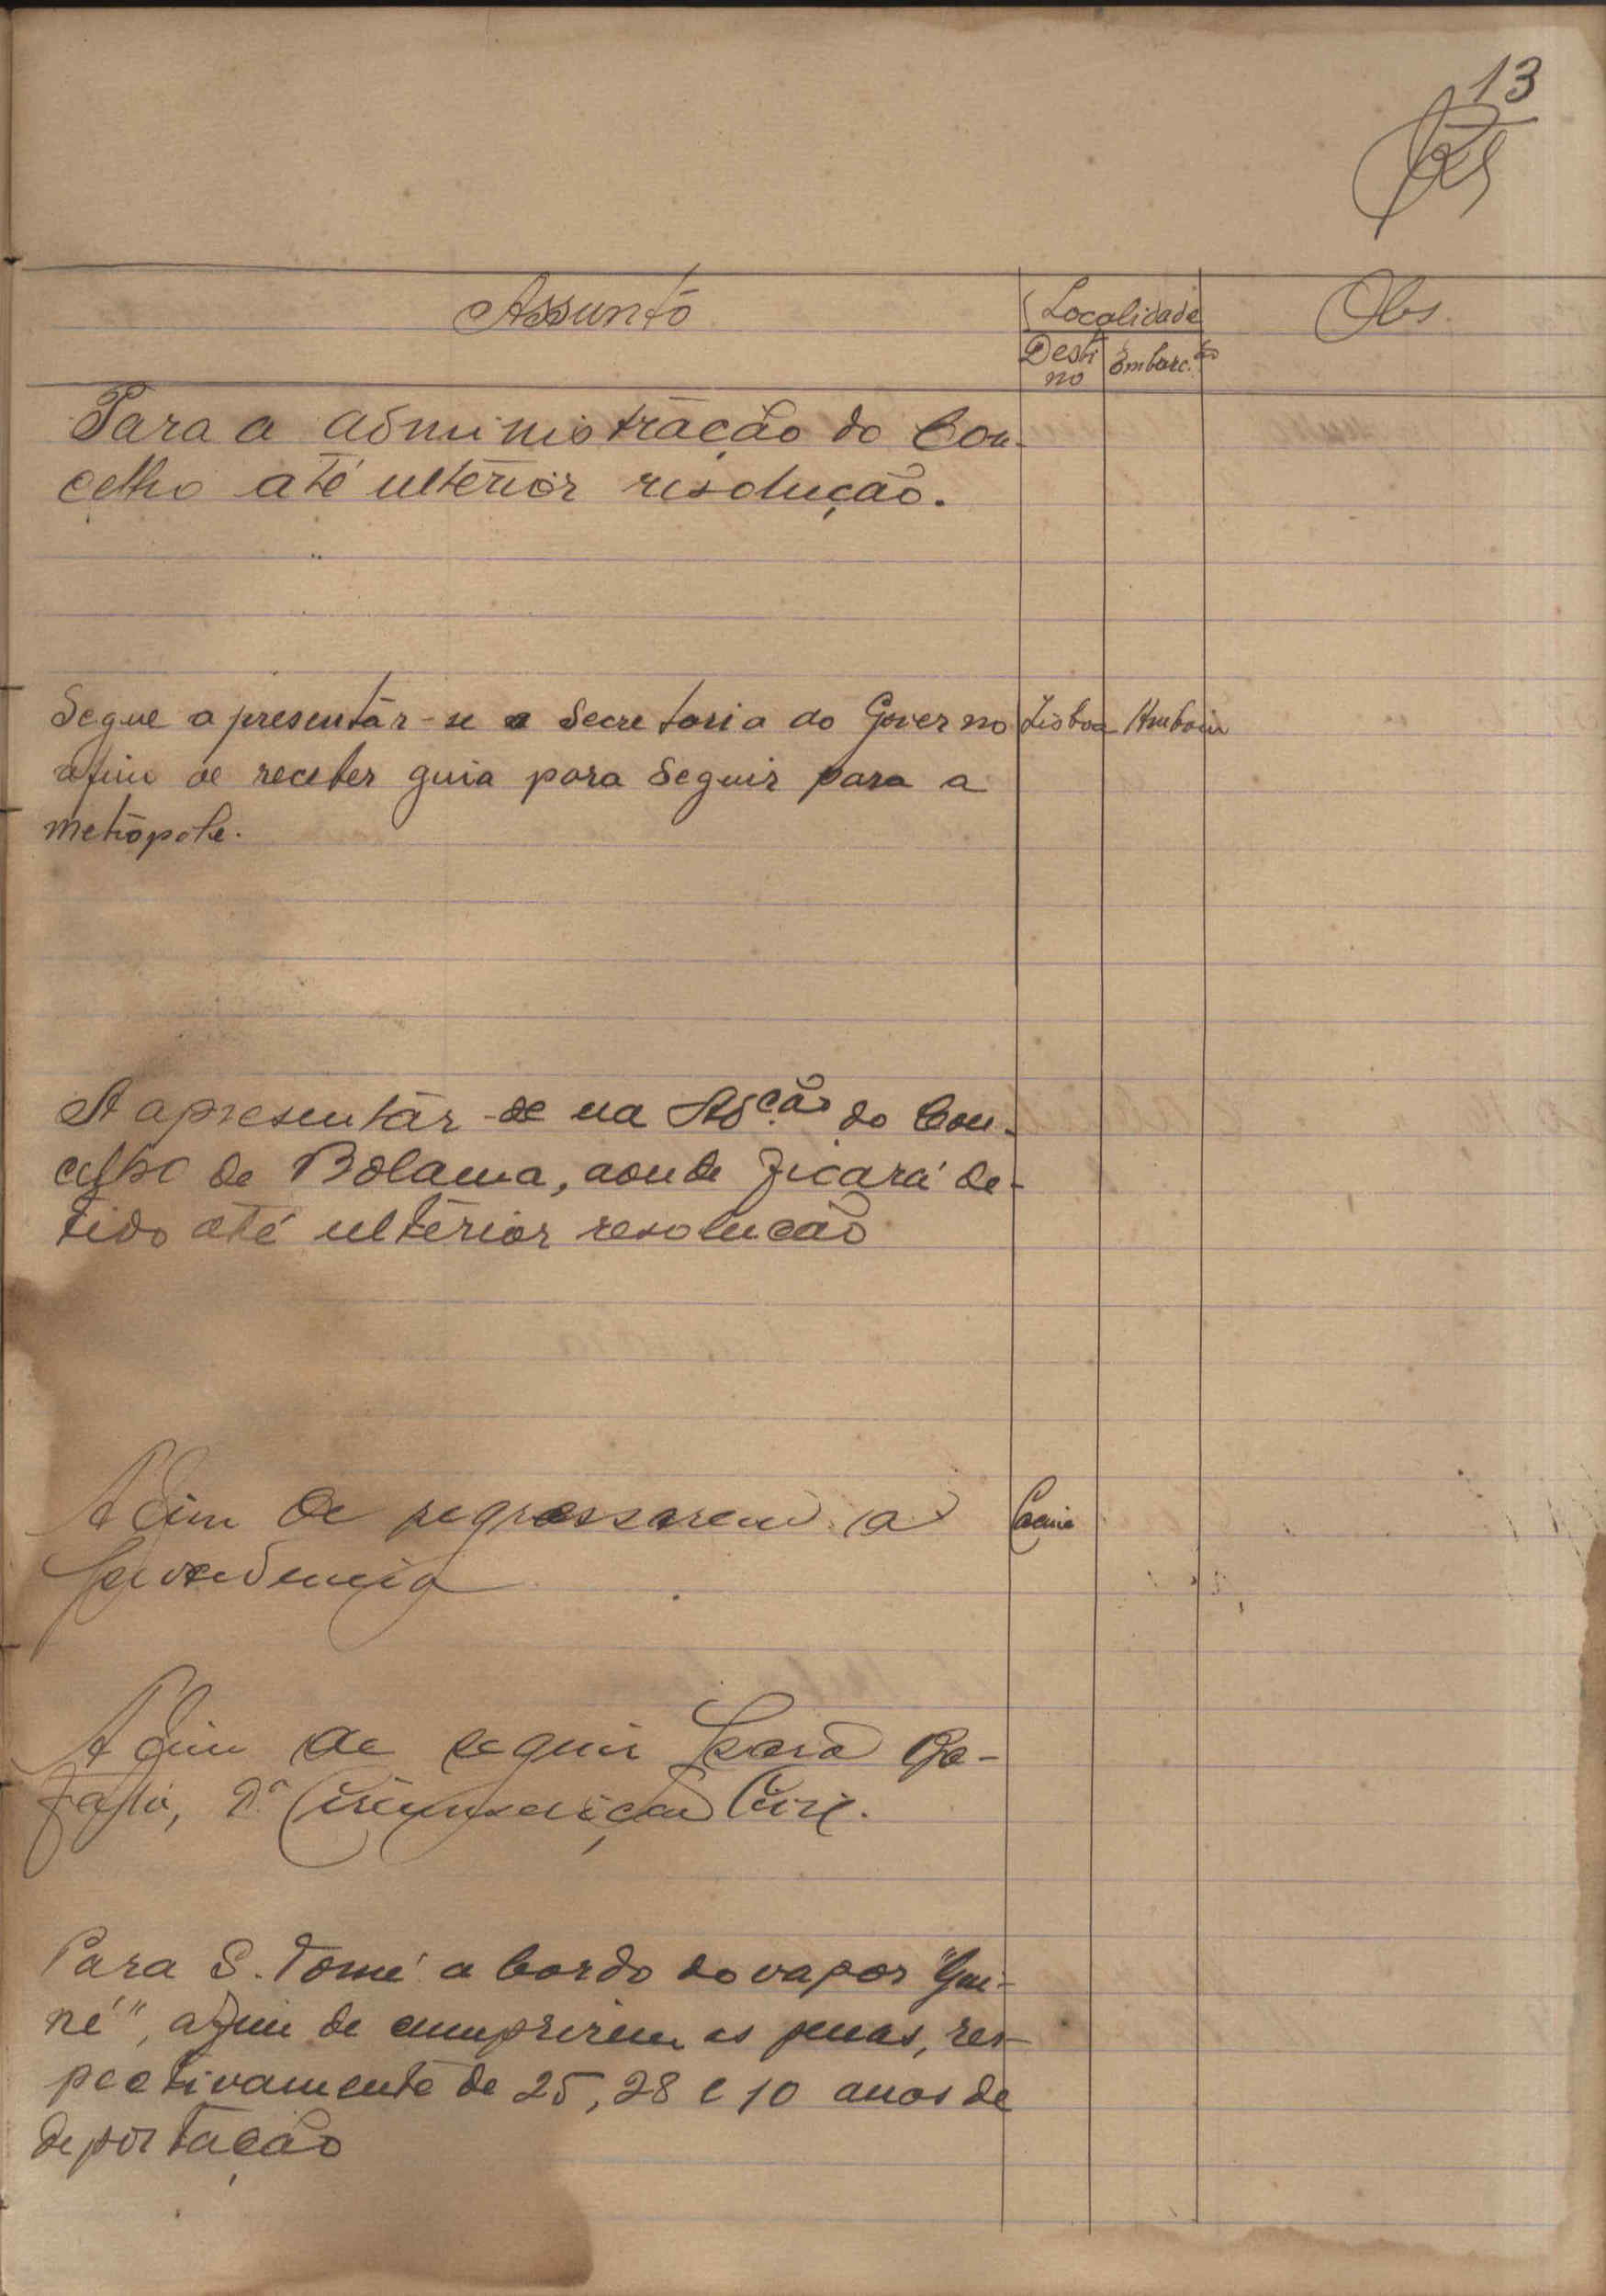 13
Assunto
Localidade
Obs.
Desti
no
Embarc.ão
Para a administração do Con-
celho até ulterior resolução.
Segue apresentár-se a Secretaria do Governo Lisboa Amboim
afim de receber guia para seguir para a
metrópole.
A apresentár-se na Adm.ção do Con-
celho de Bolama, aonde ficará de-
tido até ulterior resolução
Afim de regressarem a Cacine
procedencia
Afim de seguir para Ba-
fatá, 2.ª Circumscrição Civil.
Para S. Tomé a bordo do vapor "Gui-
né", afim de cumprirem as penas, res-
pectivamente de 25, 28 e 10 anos de
deportação